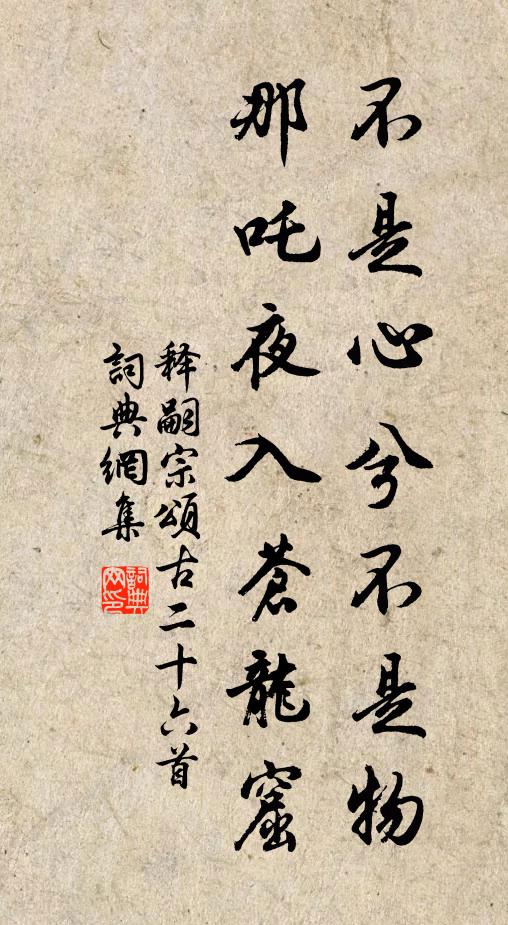 不是心兮不是物
那吒夜入蒼龍窟
释嗣宗頌古二十六首
詞典網集
詞典网印